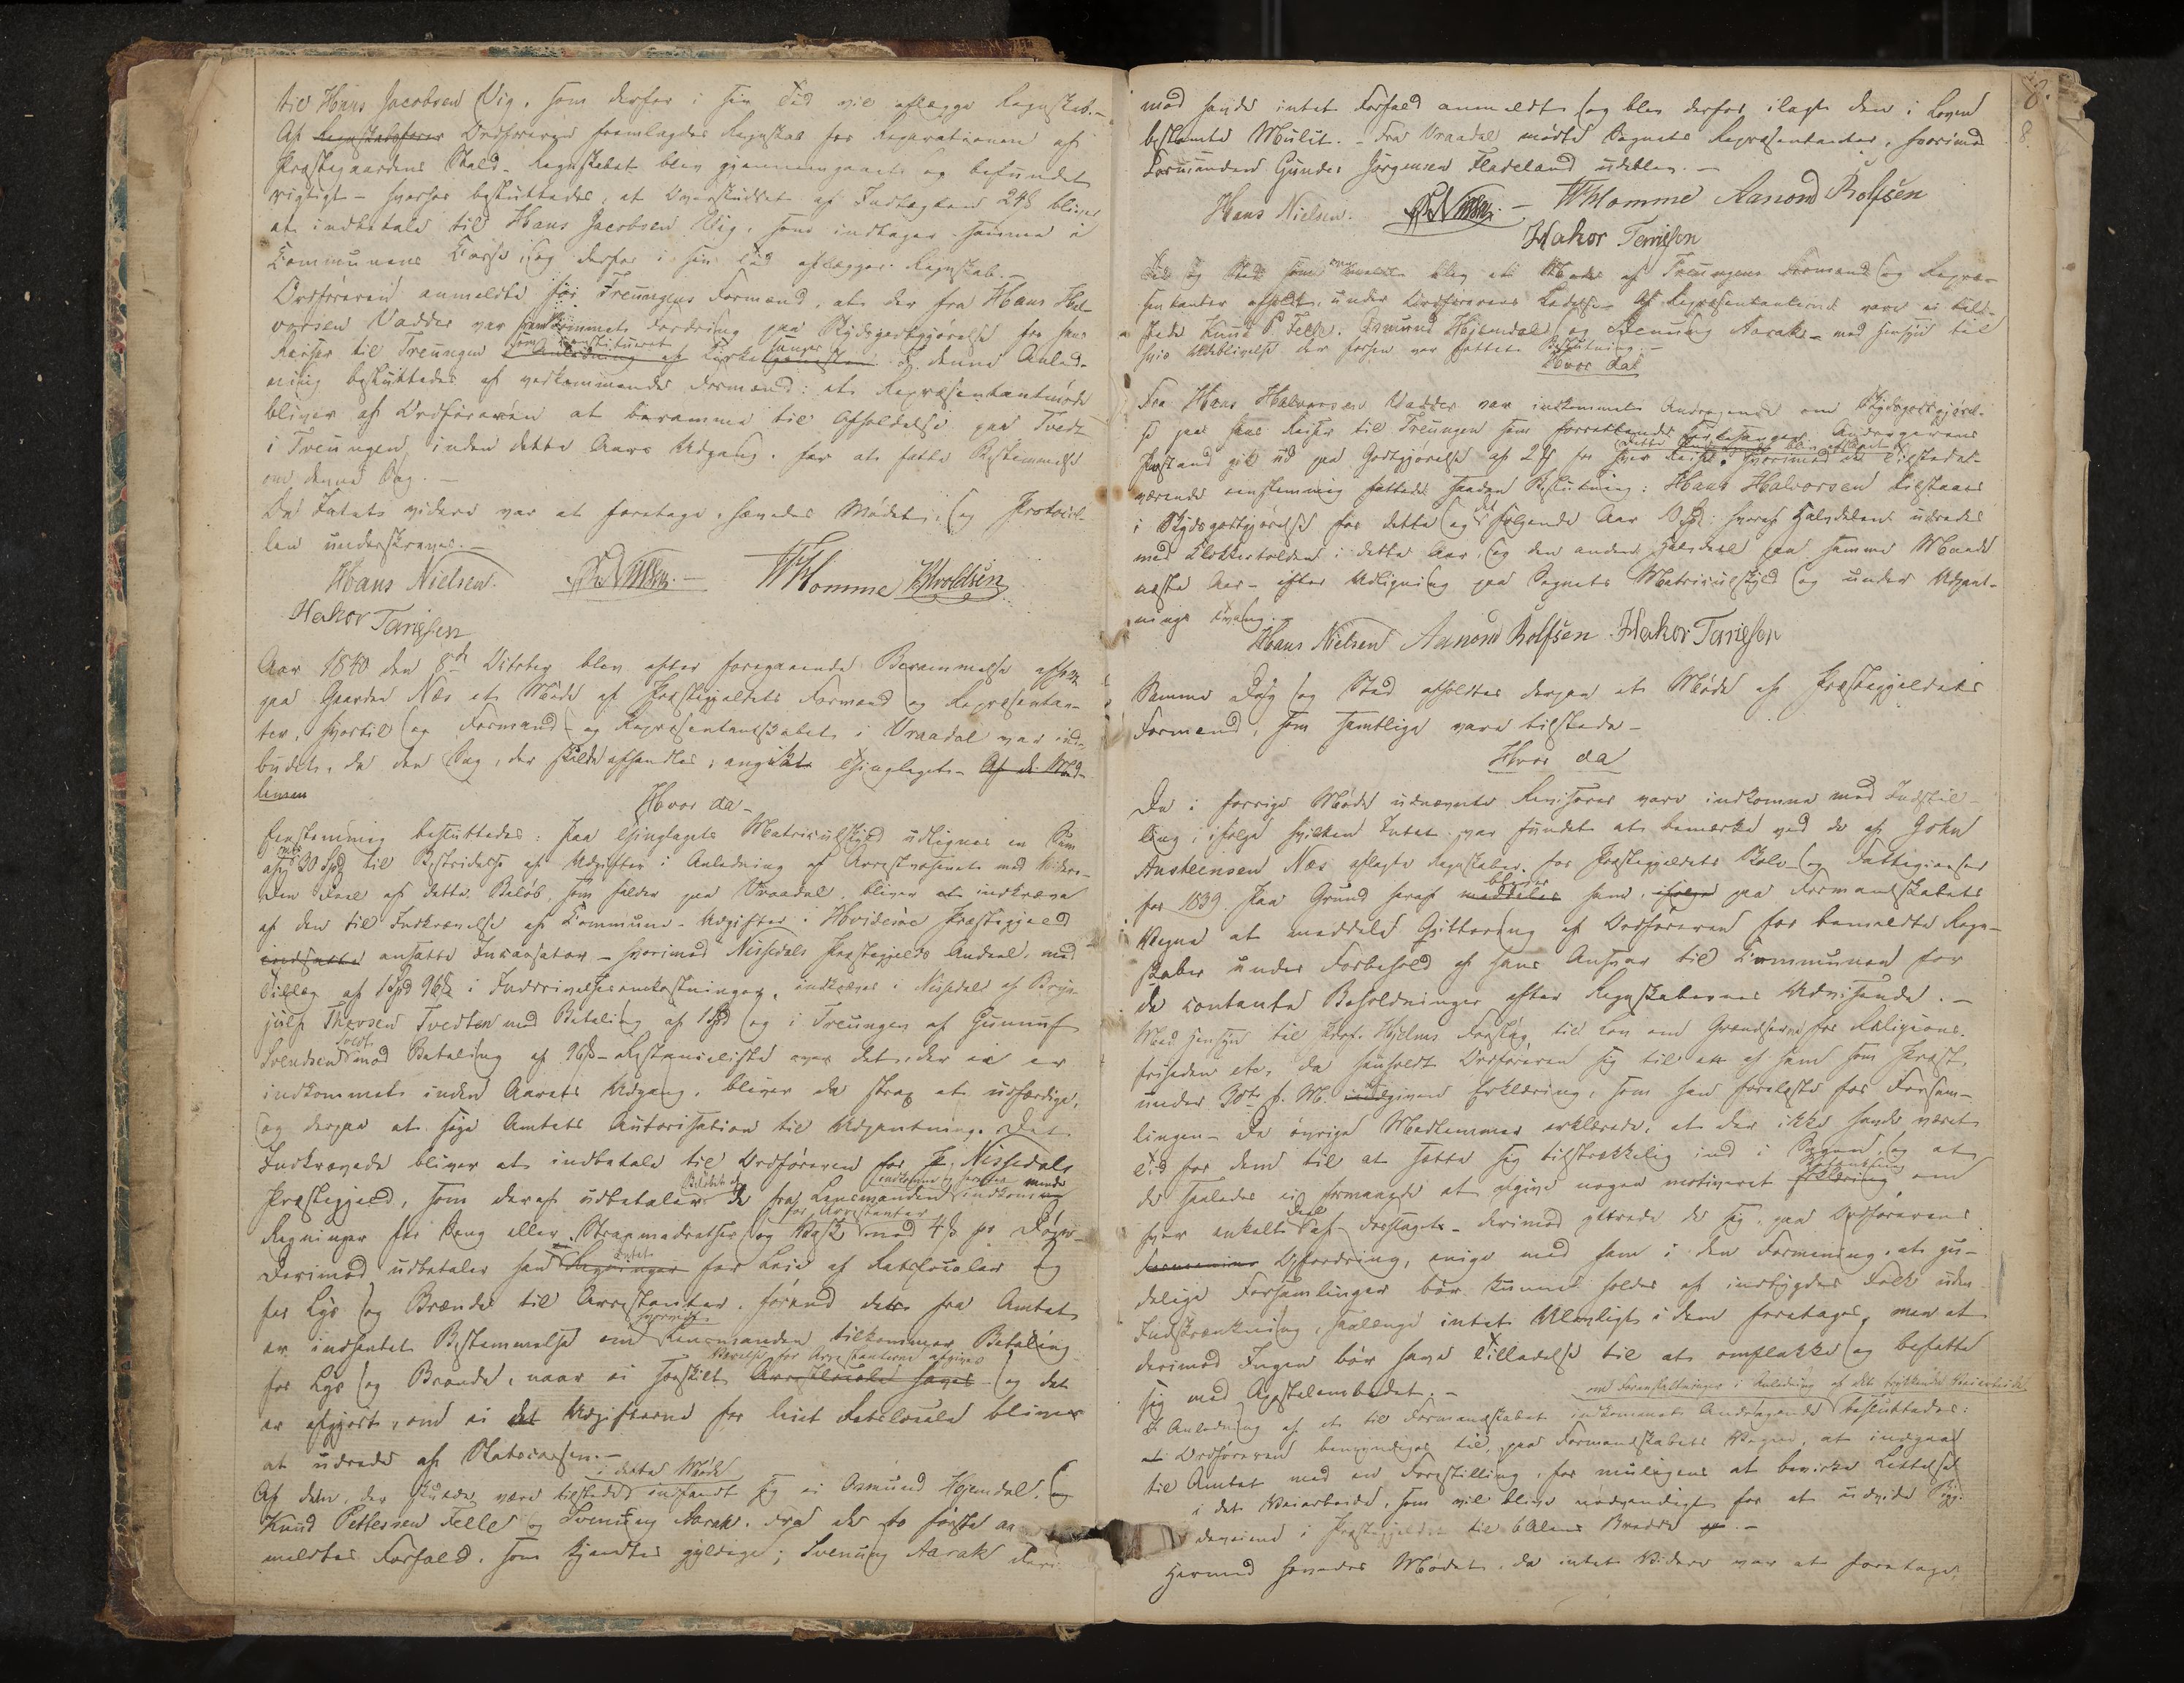 til Hans Jacobsen Vig, som derfor i sin Tid vil aflægge Regnskab.-
Af Regnskabsfører Ordføreren fremlagdes Regnskab for Reparationen af
Præstegaardens Stald. Regnskabet blev gjennemgaaet og befundet
rigtigt - hvorfor besluttedes, at Overskudet af Indtægten 24ß bliver
at indbetale til Hans Jacobsen Vig, som indtager samme i
Communens Casse, og derfor i sin Tid aflægger Regnskab.-
Ordføreren anmeldte for Treungens Formænd, at der fra Hans Hal-
vorsen Vadder var fremkommet Fordring paa Skydsgodtgjørelse for hans
Reiser til Treungen som constitueret Kirkesanger. I denne Anled-
ning besluttedes af vedkommende Formænd: at Repræsentantmøde
bliver af Ordføreren at beramme til Afholdelse paa Tvedt
i Treungen inden dette Aars Udgang, for at fatte Bestemmelse
om denne Sag.-
Da Intet videre var at foretage, hævedes Mødet, og Protocol-
len underskreves.-
Hans Nielsen. THomme KHvoldsen
Hakor Tarjesen
Aar 1840 den 8de Octbr blev efter foregaaende Berammelse afholdt
paa Gaarden Næs et Møde af Præstegjeldets Formænd og Repræsentan-
ter, hvortil og Formand- og Repræsentantskabet i Vraadal var ind-
budet, da den Sag, der skulde afhandles, angik Thinglaget. Af de Med-
lemmer
Hvor da-
Eenstemmig besluttedes: Paa Thinglagets Matriculskyld udlignes en Sum
af 30 Spd til Bestridelse af Udgifter i Anledning af Arrestvæsenet med Videre-
Den Deel af dette Beløb, som falder paa Vraadal, bliver at indkræve
af den til Indkrævelse af Commune-Udgifter i Hvideseie Præstegjeld
indsatte ansatte Incassator - hvorimod Nissedals Præstegjelds Andeel, med
Tillæg af 1 Spd 96ß i Inddrivelsesomkostninger, indkræves i Nissedal af Bryn-
julf Thorsen Tvedten mod Betaling af 1 Spd og i Treungen af Gunnuf
Svendsen Tvedt mod Betaling af 96ß. Restanceliste over det, der ei er
indkommet inden Aarets Udgang, bliver da strax at udfærdige,
og derpaa at søge Amtets Autorisation til Udpantning. Det
Indkrævede bliver at indbetale til Ordføreren for Nissedals
Præstegjeld, som deraf udbetaler Beløbet af de fra Lensmanden indkomne og herefter indkommende
Regninger for Seng eller Straamadratser og Vask for Arrestanter med 4ß pr Døgn-
Derimod udbetaler han Intet for Leie af Retslocaler og
for Lys og Brænde til Arrestanter, førend det fra Amtet
er indhentet Bestemmelse om hvorvidt Lensmanden tilkommer Betaling
for Lys og Brænde, naar ei særskilt Værelse for Arrestanterne afgives og det
er afgjort, om ei Udgifterne for leiet Retslocale bliver
at udrede af Statscassen.-
Af dem, der skulde være tilstede i dette Møde indfandt sig ei Osmund Hejendal, og
Knud Pettersen Felle og Svenung Aarak. Fra de to første an-
meldtes Forfald, som kjendtes gyldige; Svenung Aarak der-
8.
8.
mod havde intet Forfald anmeldt og blev derfor ilagt den i Loven
bestemte Mulct. - Fra Vraadal mødte Sognets Repræsentanter, hvorimod
Formanden Gunder Jørgensen Fladeland udeblev.-
Hans Nielsen. - THomme Aanond Rolfsen
Hakor Tarjesen
Tid og Sted som ommeldt blev et Møde af Treungens Formænd og Repræ-
sentanter afholdt, under Ordførerens Ledelse. Af Repræsentanterne vare ei tilste-
stede Knud P. Felle, Osmund Hejendal og Svenung Aarak - med Hensyn til
hvis Udeblivelse der forhen var fattet Beslutning.-
Hvor da
Fra Hans Halvorsen Vadder var indkommet Andragende om Skydsgodtgjørel-
se paa hans Reiser til Treungen som forrettende Kirkesanger. Andragerens
Paastand gik ud paa Godtgjørelse af 2 for hver Reise. hvorimod de Tilstedet-
værende eenstemmig fattede saadan Beslutning: Hans Halvorsen tilstaaes
i Skydsgodtgjørelse for dette og det følgende Aar hvoraf Halvdelen udredes
med Klokkertolden i dette Aar, og den anden Halvdeel paa samme Maade
næste Aar - efter Udligning paa Sognets Matriculskyld og under Udpant-
nings Tvang.-
Hans Nielsen Aanond Rolfsen Hakor Tarjesen
Samme Dag og Sted afholdtes derpaa et Møde af Præstegjeldets
Formænd, som samtlige vare tilstede-
Hvor da
De i forrige Møde udnævnte Revisorer vare indkomne med Indstil-
ling, ifølge hvilken Intet var fundet at bemærke ved de af John
Austeensen Næs aflagte Regnskaber for Præstegjeldets Skole- og Fattigvæsen
for 1839. Paa Grund heraf bliver ham, ifølge paa Formandskabets
Vegne at meddele Qvittering af Ordføreren for bemeldte Regn-
skaber under Forbehold af hans Ansvar til Communen for
de contante Beholdninger efter Regnskabernes Udvisende.-
Med Hensyn til Prof. Hjelms Forslag til Lov om Grændserne for Religions-
friheden etc. da henholdt Ordføreren sig til en af ham som Præst,
under 30te f. M. afgiven Erklæring, som han forelæste for Forsam-
lingen. De øvrige Medlemmer erklærede, at der ikke havde været
Tid for dem til at sætte sig tilstrækkelig ind i Sagen, og at
de saaledes ei formaaede at afgive nogen motiveret Betænkning om
hver enkelt Deel af Forslaget - derimod yttrede de sig, paa Ordførerens
Formening Opfordring, enige med ham i den Formening, at gu-
delige Forsamlinger bør kunne holdes af indbygdes Folk uden
Indskrænkning, saalænge intet Ulovligt i dem foretages, men at
derimod Ingen bør have Tilladelse til at omflakke og befatte
sig med Apostelembedet.-
I Anledning af et til Formandskabet indkommet Andragende om Foranstaltninger i Anledning af det trykkende Veiarbeide besluttedes:
at Ordføreren bemyndiges til, paa Formandskabets Vegne, at indgaae
til Amtet med en Forestilling, for muligens at bevirke Lettelse
i det Veiarbeide, som vil blive nødvendigt for at udvide Byg-
deveiene i Præstegjeldet til 6 Alens Bredde.-
Hermed hævedes Mødet, da intet Videre var at foretage.